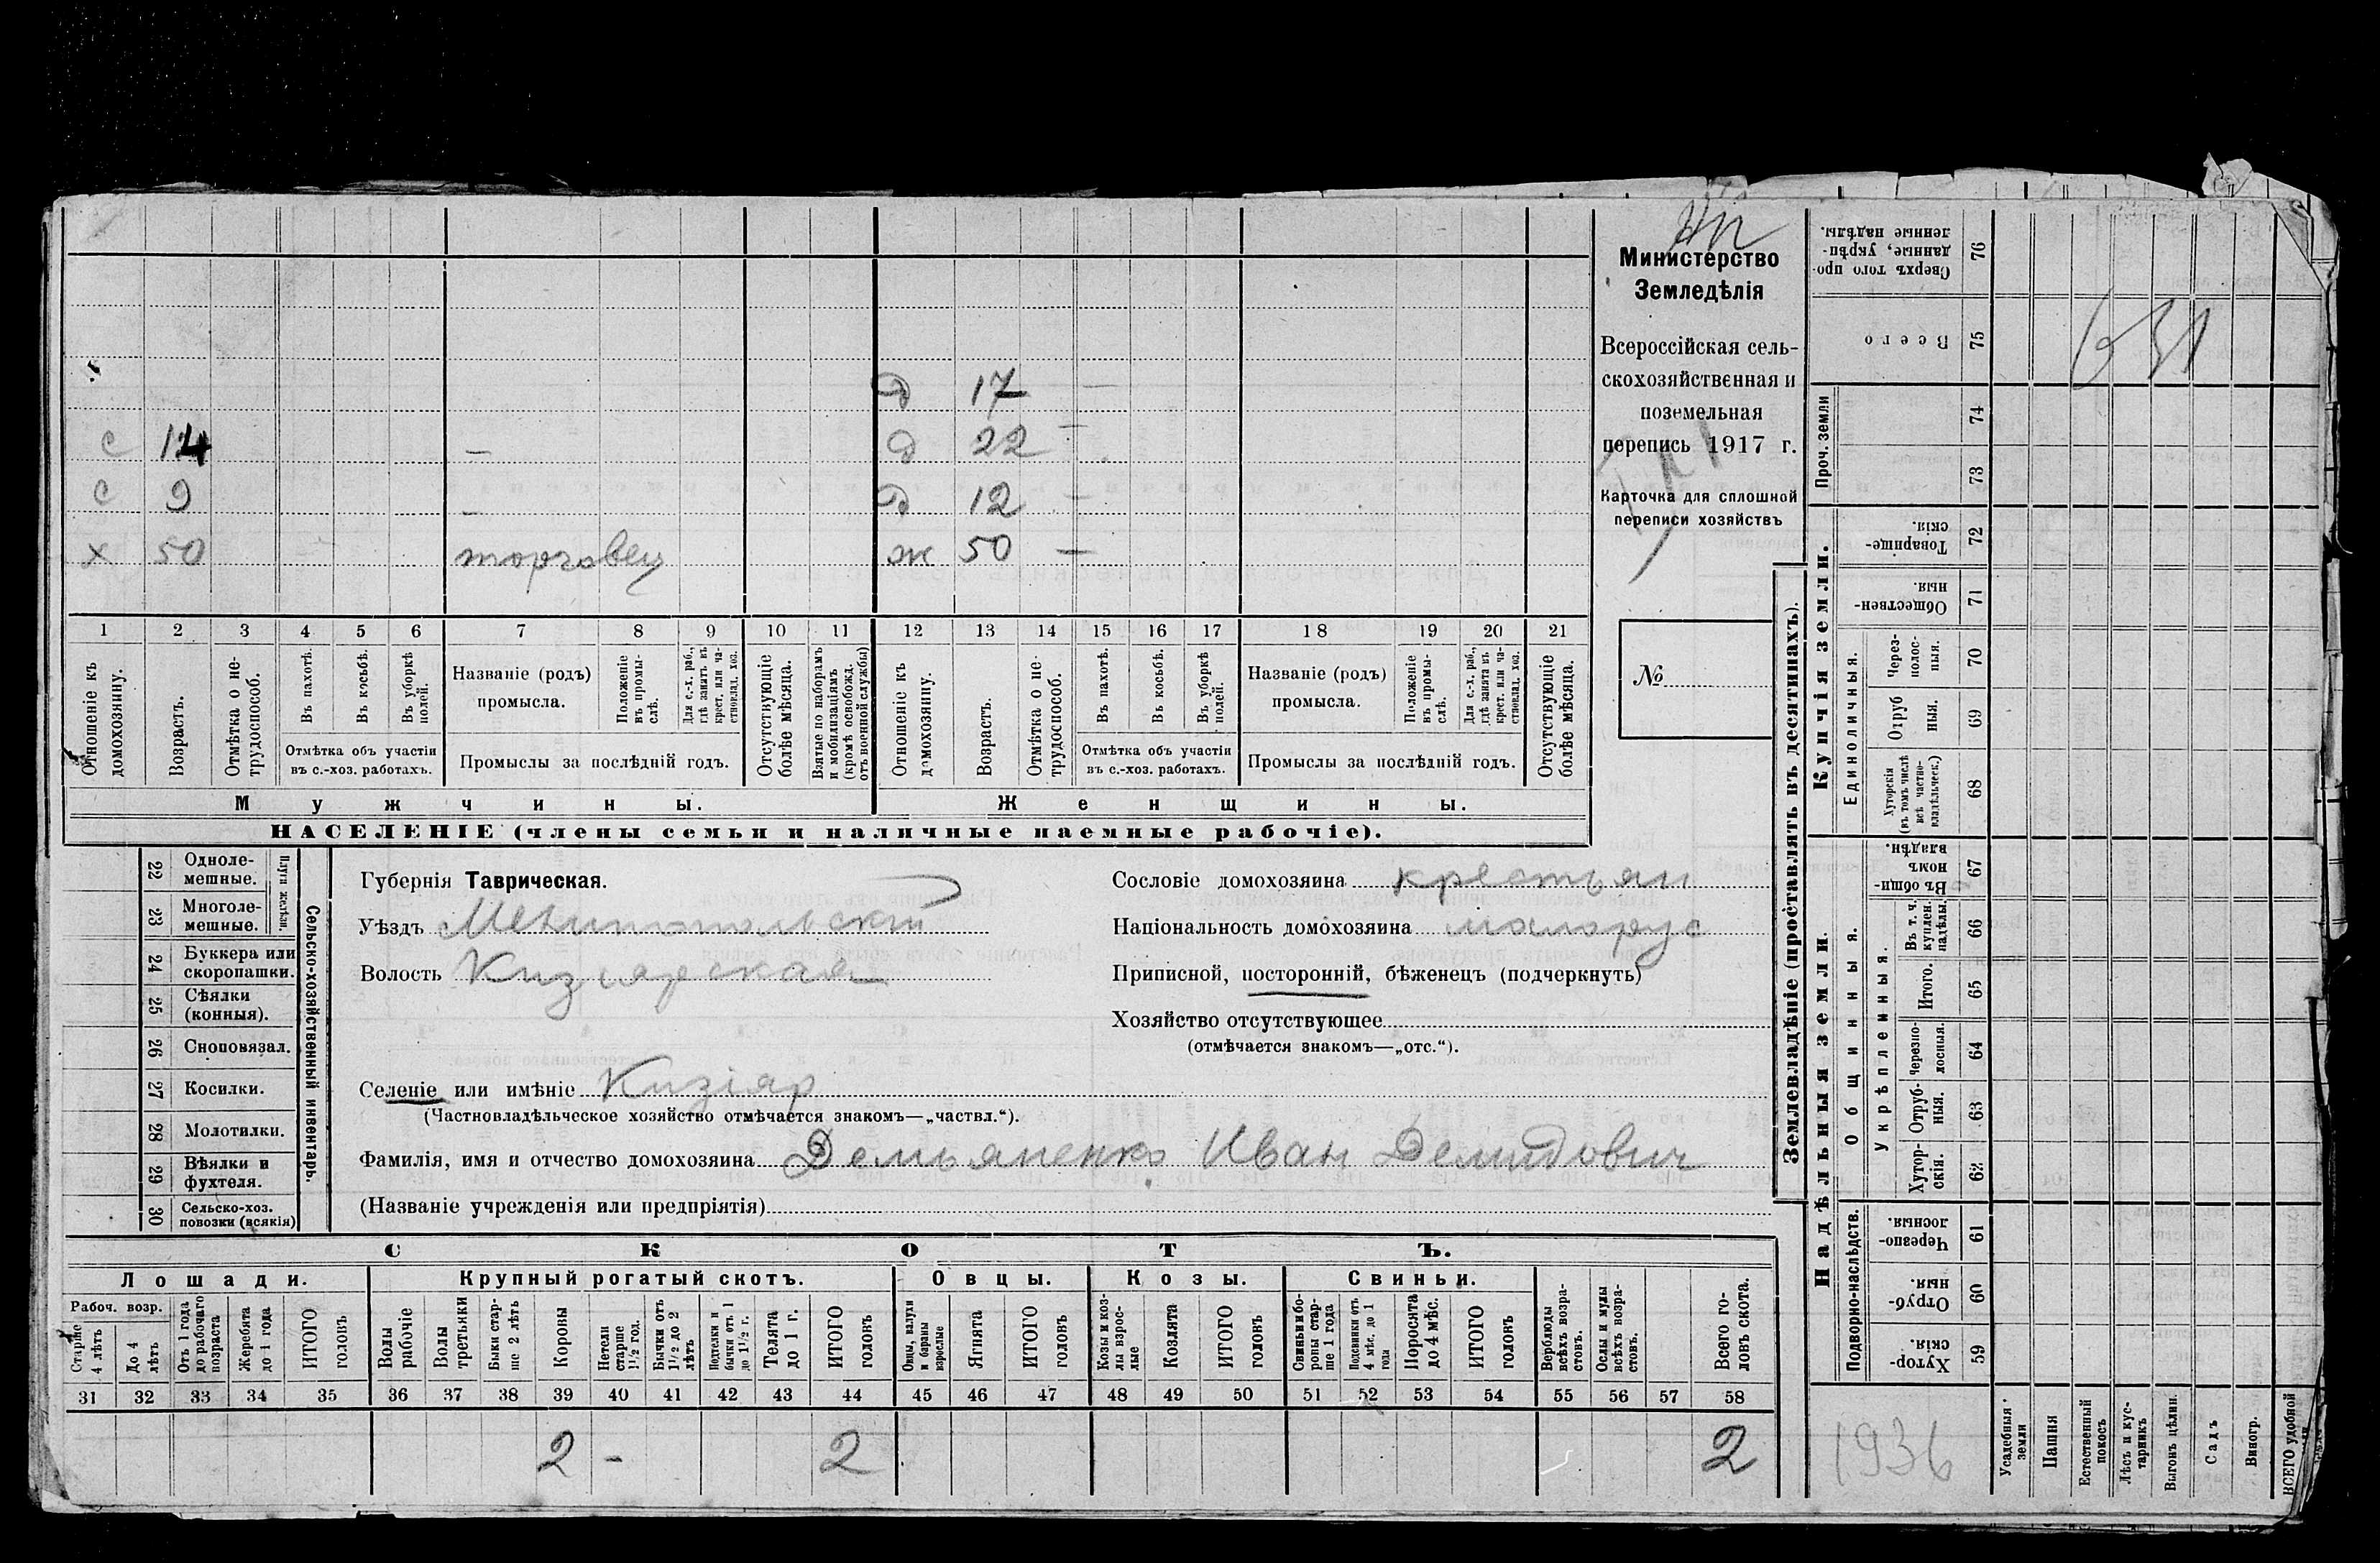 Министерство
Земледѣлія
Всероссійская сель-
скохозяйственная и
поземельная
перепись 1917 г.
Карточка для сплошной
переписи хозяйствъ
№
д 17 —
с 14 — д 22 —
с 9 — д 12 —
х 50 торговец ж 50 —
1 2 3 4 5 6 7 8 9 10 11 12 13 14 15 16 17 18 19 20 21
Отношеніе къ домохозяину.
Возрастъ.
Отмѣтка о не-трудоспособ.
Въ пахотѣ.
Въ косьбѣ.
Въ уборкѣ полей.
Отмѣтка объ участіи
въ с.-хоз. работахъ.
Названіе (родъ)
промысла.
Положеніе въ промы-слѣ.
Для с.-х. раб., гдѣ занятъ въ крест. или ча-стновлад. хоз.
Промыслы за послѣдній годъ.
Отсутствующіе болѣе мѣсяца.
Взятые по наборамъ и мобилизаціямъ (кромѣ освобожд. отъ военной службы)
Отношеніе къ домохозяину.
Возрастъ.
Отмѣтка о не-трудоспособ.
Въ пахотѣ.
Въ косьбѣ.
Въ уборкѣ полей.
Отмѣтка объ участіи
въ с.-хоз. работахъ.
Названіе (родъ)
промысла.
Положеніе въ промы-слѣ.
Для с.-х. раб., гдѣ занята въ крест. или ча-стновлад. хоз.
Промыслы за послѣдній годъ.
Отсутствующіе болѣе мѣсяца.
Мужчины. Женщины.
НАСЕЛЕНІЕ (члены семьи и наличные наемные рабочіе).
Сельско-хозяйственный инвентарь.
Плуги желѣзн.
22 Одноле-мешные.
23 Многоле-мешные.
24 Буккера или скоропашки.
25 Сѣялки (конныя).
26 Сноповязал.
27 Косилки.
28 Молотилки.
29 Вѣялки и фухтеля.
30 Сельско-хоз. повозки (всякія)
Губернія Таврическая.
Уѣздъ Мелитопольскій
Волость Кизіярская
Селеніе или имѣніе Кизіяр
(Частновладѣльческое хозяйство отмѣчается знакомъ—„частвл.“).
Фамилія, имя и отчество домохозяина Демьяненко Иван Демидович
(Названіе учрежденія или предпріятія)
Сословіе домохозяина крестьян
Національность домохозяина малорус
Приписной, посторонній, бѣженецъ (подчеркнуть)
Хозяйство отсутствующее
(отмѣчается знакомъ—„отс.“).
СКОТЪ.
Лошади. Крупный рогатый скотъ. Овцы. Козы. Свиньи.
Рабоч. возр.
Старше 4 лѣтъ
До 4 лѣтъ
Отъ 1 года до рабочаго возраста
Жеребята до 1 года
ИТОГО головъ
Волы рабочіе
Волы третьяки
Быки стар-ше 2 лѣтъ
Коровы
Нетели старше 1½ год.
Бычки отъ 1½ до 2 лѣтъ
Подтелки и бычки отъ 1 до 1½ г.
Телята до 1 г.
ИТОГО головъ
Овцы, валухи и бараны взрослые
Ягнята
ИТОГО головъ
Козы и коз-лы взрос-лые
Козлята
ИТОГО головъ
Свиньи и бо-ровы стар-ше 1 года
Подсвинки отъ 4 мѣс. до 1 года
Поросята до 4 мѣс.
ИТОГО головъ
Верблюды всѣхъ возра-стовъ.
Ослы и мулы всѣхъ возра-стовъ.
Всего го-ловъ скота.
31 32 33 34 35 36 37 38 39 40 41 42 43 44 45 46 47 48 49 50 51 52 53 54 55 56 57 58
2 - 2 2
Землевладѣніе (проставлять въ десятинахъ).
Надѣльныя земли. Купчія земли.
Проч. земли
Сверхъ того про-данные, укрѣп-ленные надѣлы. 76
Всего 75
74
73
Товарище-скія. 72
Обществен-ныя 71
Единоличныя.
Через-полос-ныя. 70
Отруб ныя. 69
Хуторскія (въ томъ числѣ всѣ частно-владѣльческ.) 68
Общинныя.
Въ общи номъ владѣн. 67
Укрѣпленныя.
Въ т. ч. куплен. надѣлы. 66
Итого. 65
Черезпо-лосныя. 64
Отруб-ныя. 63
Хутор-скія. 62
Подворно-наслѣдств.
Черезпо-лосныя 61
Отруб-ныя. 60
Хутор-скія 59
Усадебныя земли
Пашня
Естественный покосъ
Лѣсъ и кус-тарникъ
Выгонъ цѣлин.
Садъ
Виногр.
ВСЕГО удобной
1936